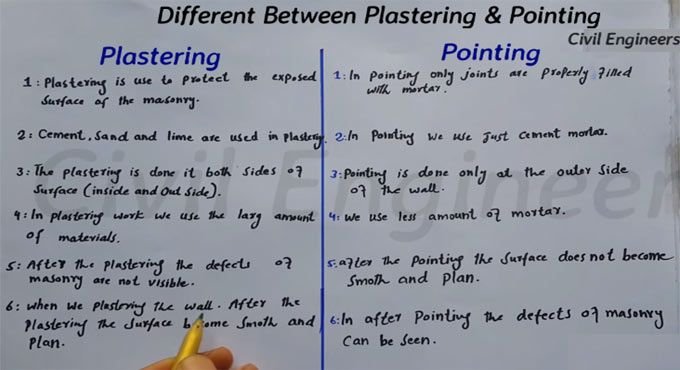 Different Between Plastering & Pointing
Civil Engineers
Plastering
1: Plastering is use to protect the exposed
surface of the masonry.
2: Cement, sand and lime are used in plastering.
3: The plastering is done it both sides of
surface (inside and out side).
4: In plastering work we use the larg amount
of materials.
5: After the plastering the defects of
masonry are not visible.
6: when we plastering the wall. After the
plastering the surface become smoth and
plan.
Pointing
1: In pointing only joints are properly filled
with mortar.
2: In pointing we use just cement mortar.
3: Pointing is done only at the outer side
of the wall.
4: we use less amount of mortar.
5: after the pointing the surface does not become
smoth and plan.
6: In after pointing the defects of masonry
can be seen.
Civil Engineer